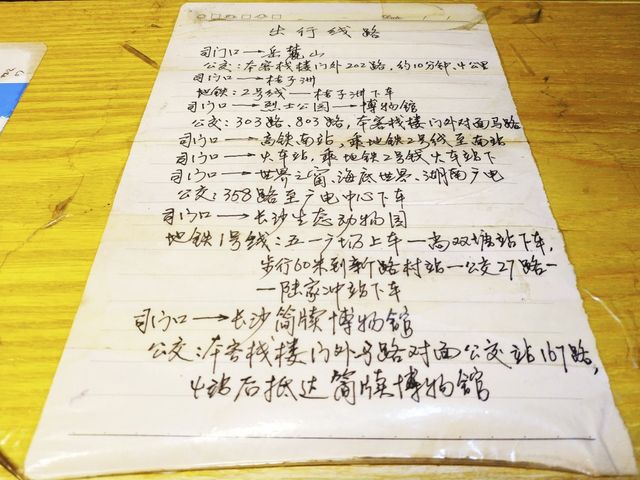 出行线路
司门口→岳麓山
公交:本客栈楼门外202路,约10分钟,4公里
司门口→桔子洲
地铁:2号线—桔子洲下车
司门口→烈士公园→博物馆
公交:303路、803路,本客栈楼门外对面马路
司门口→高铁南站,乘地铁2号线至南站
司门口→火车站,乘地铁2号线火车站下
司门口→世界之窗、海底世界、湖南广电
公交:358路至广电中心下车
司门口→长沙生态动物园
地铁1号线:五一广场上车—尚双塘站下车,
步行60米到新路村站—公交27路—
—陆家冲站下车
司门口→长沙简牍博物馆
公交:本客栈楼门外马路对面公交站167路,
4站后抵达简牍博物馆